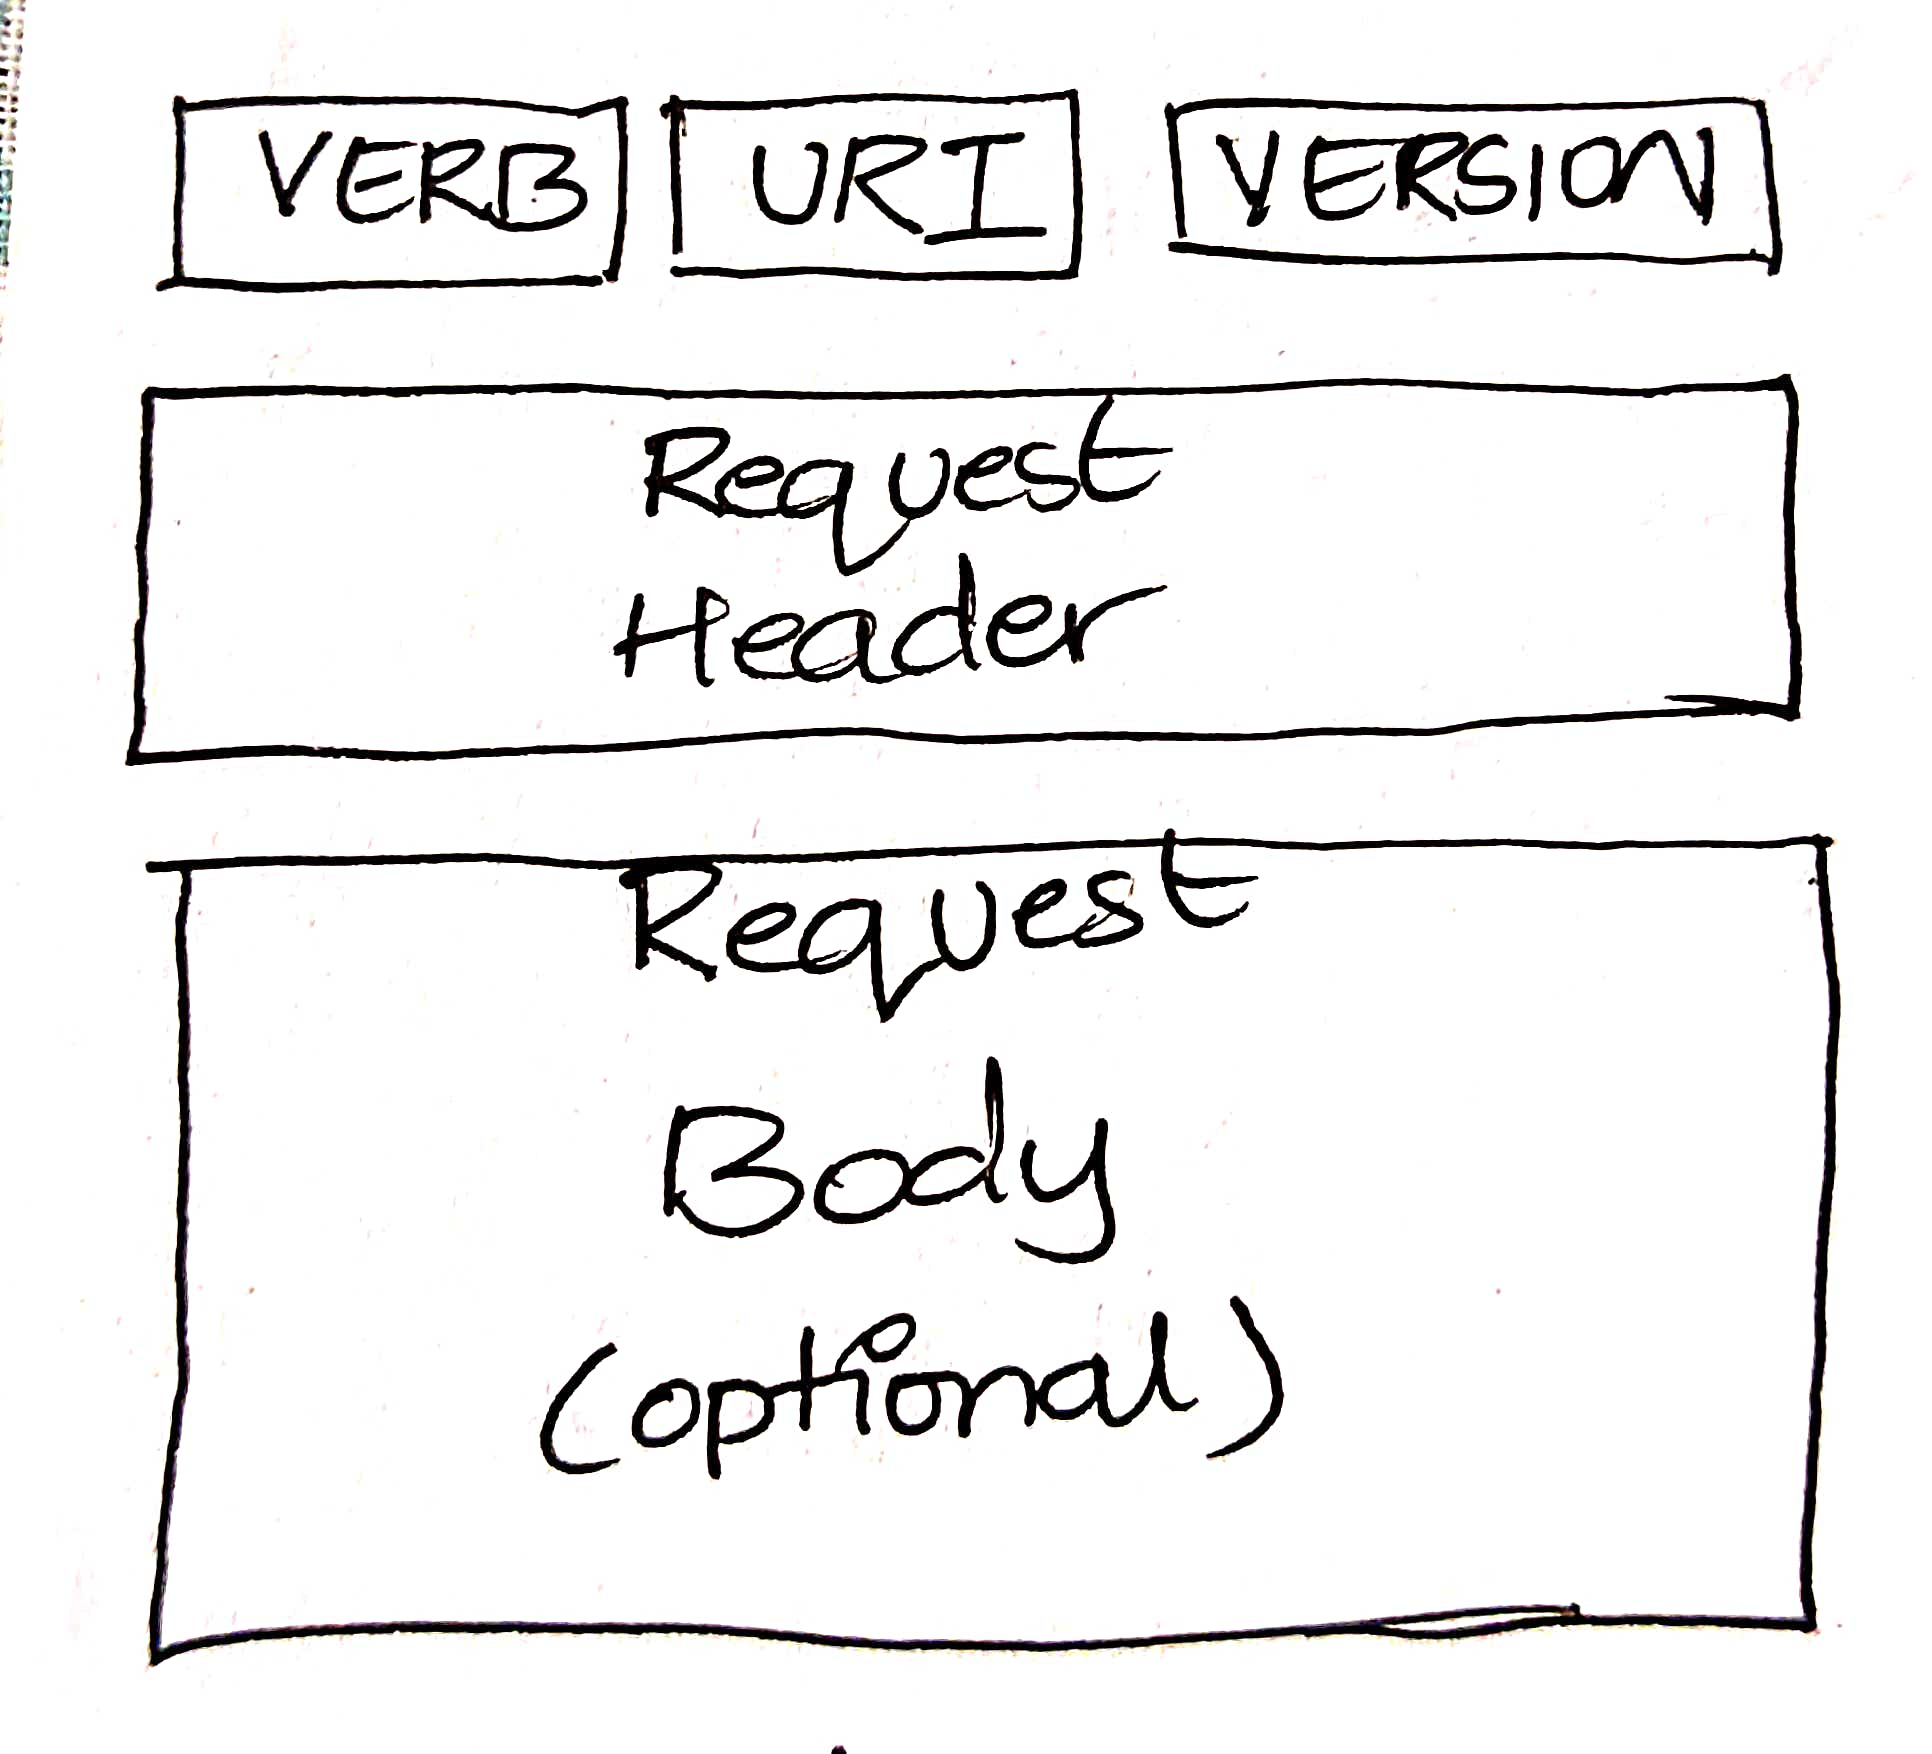 VERB URI VERSION
Request
Header
Request
Body
(optional)